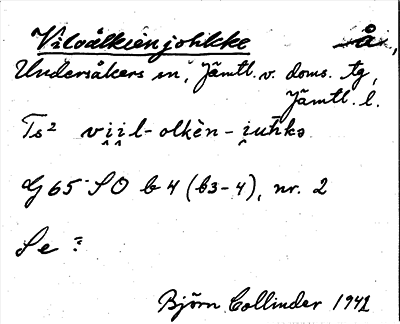 Vilvålkienjohkke Å.
Undersåkers sn, Jämtl. v. doms. tg,
Jämtl. l.
Ts² vi̭i̭l-olkèn-i̭uhkə
G 65 SO b 4 (b3-4), nr. 2
Se :
Björn Collinder 1942